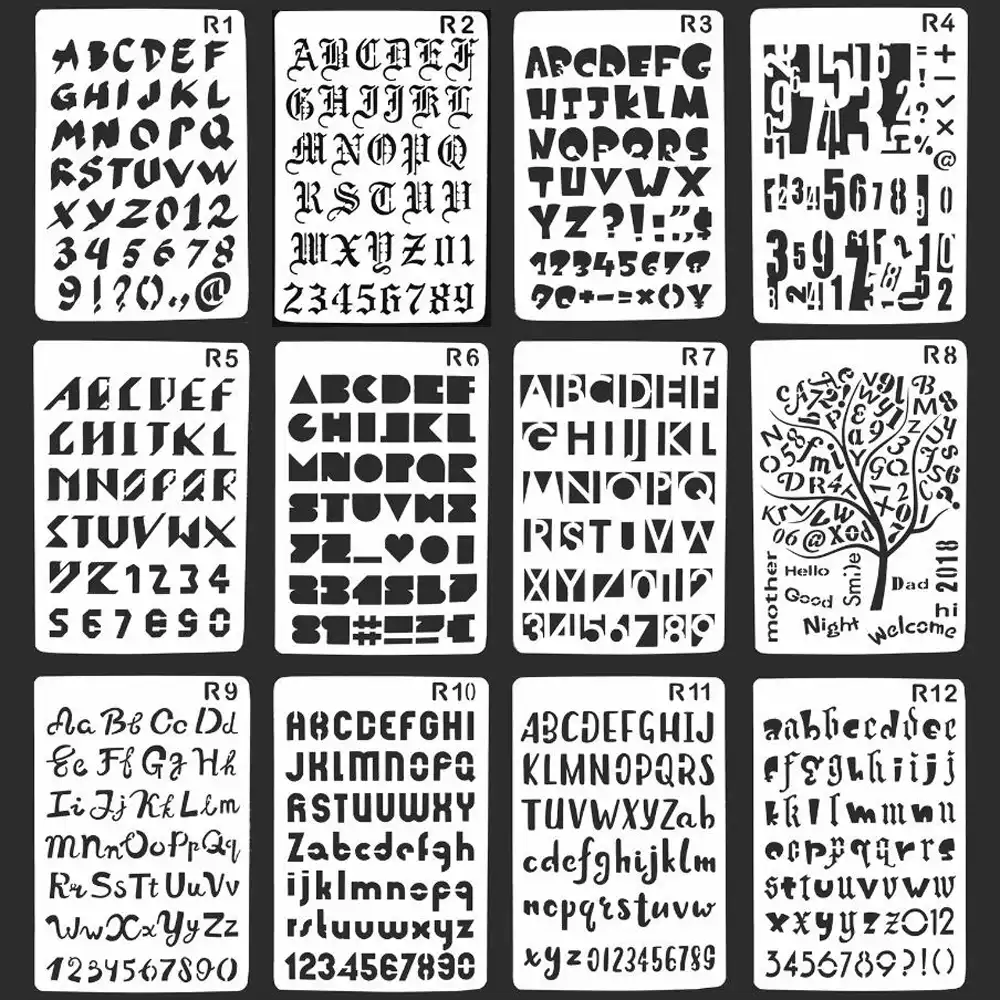 R1
ABCDEF
GHIJKL
MNOPQ
RSTUVW
XYZ012
345678
9!?().,@
R2
ABCDEF
GHIJKL
MNOPQ
RSTUV
WXYZ01
23456789
R3
ABCDEFG
HIJKLM
NOPQRS
TUVWX
YZ?!:",$
12345678
90+-=×()¥
R4
1234567890
R5
ABCDEF
GHIJKL
MNOPQR
STUVWX
YZ1234
567890
R6
ABCDEF
GHIJKL
MNOPQR
STUVWX
YZ_♥
R7
ABCDEF
GHIJKL
MNOPQ
RSTUVW
XYZ012
3456789
R8
mother
Hello
Good
Night
Smile
Dad
2018
hi
Welcome
R9
Aa Bb Cc Dd
Ee Ff Gg Hh
Ii Jj Kk Ll m
MNn Oo Pp Qq
Rr Ss Tt Uu Vv
Ww Xx Yy Zz
1234567890
R10
ABCDEFGHI
JKLMNOPQ
RSTUVWXY
Zabcdefgh
ijklmnopq
rstuvwxyz
1234567890
R11
ABCDEFGHIJ
KLMNOPQRS
TUVWXYZab
cdefghijklm
nopqrstuvw
xyz0123456789
R12
aabbccddee
ffgghhiijj
kkllmmnn
ooppqqrrs
sttuuvvww
xxyyzz012
3456789?!()